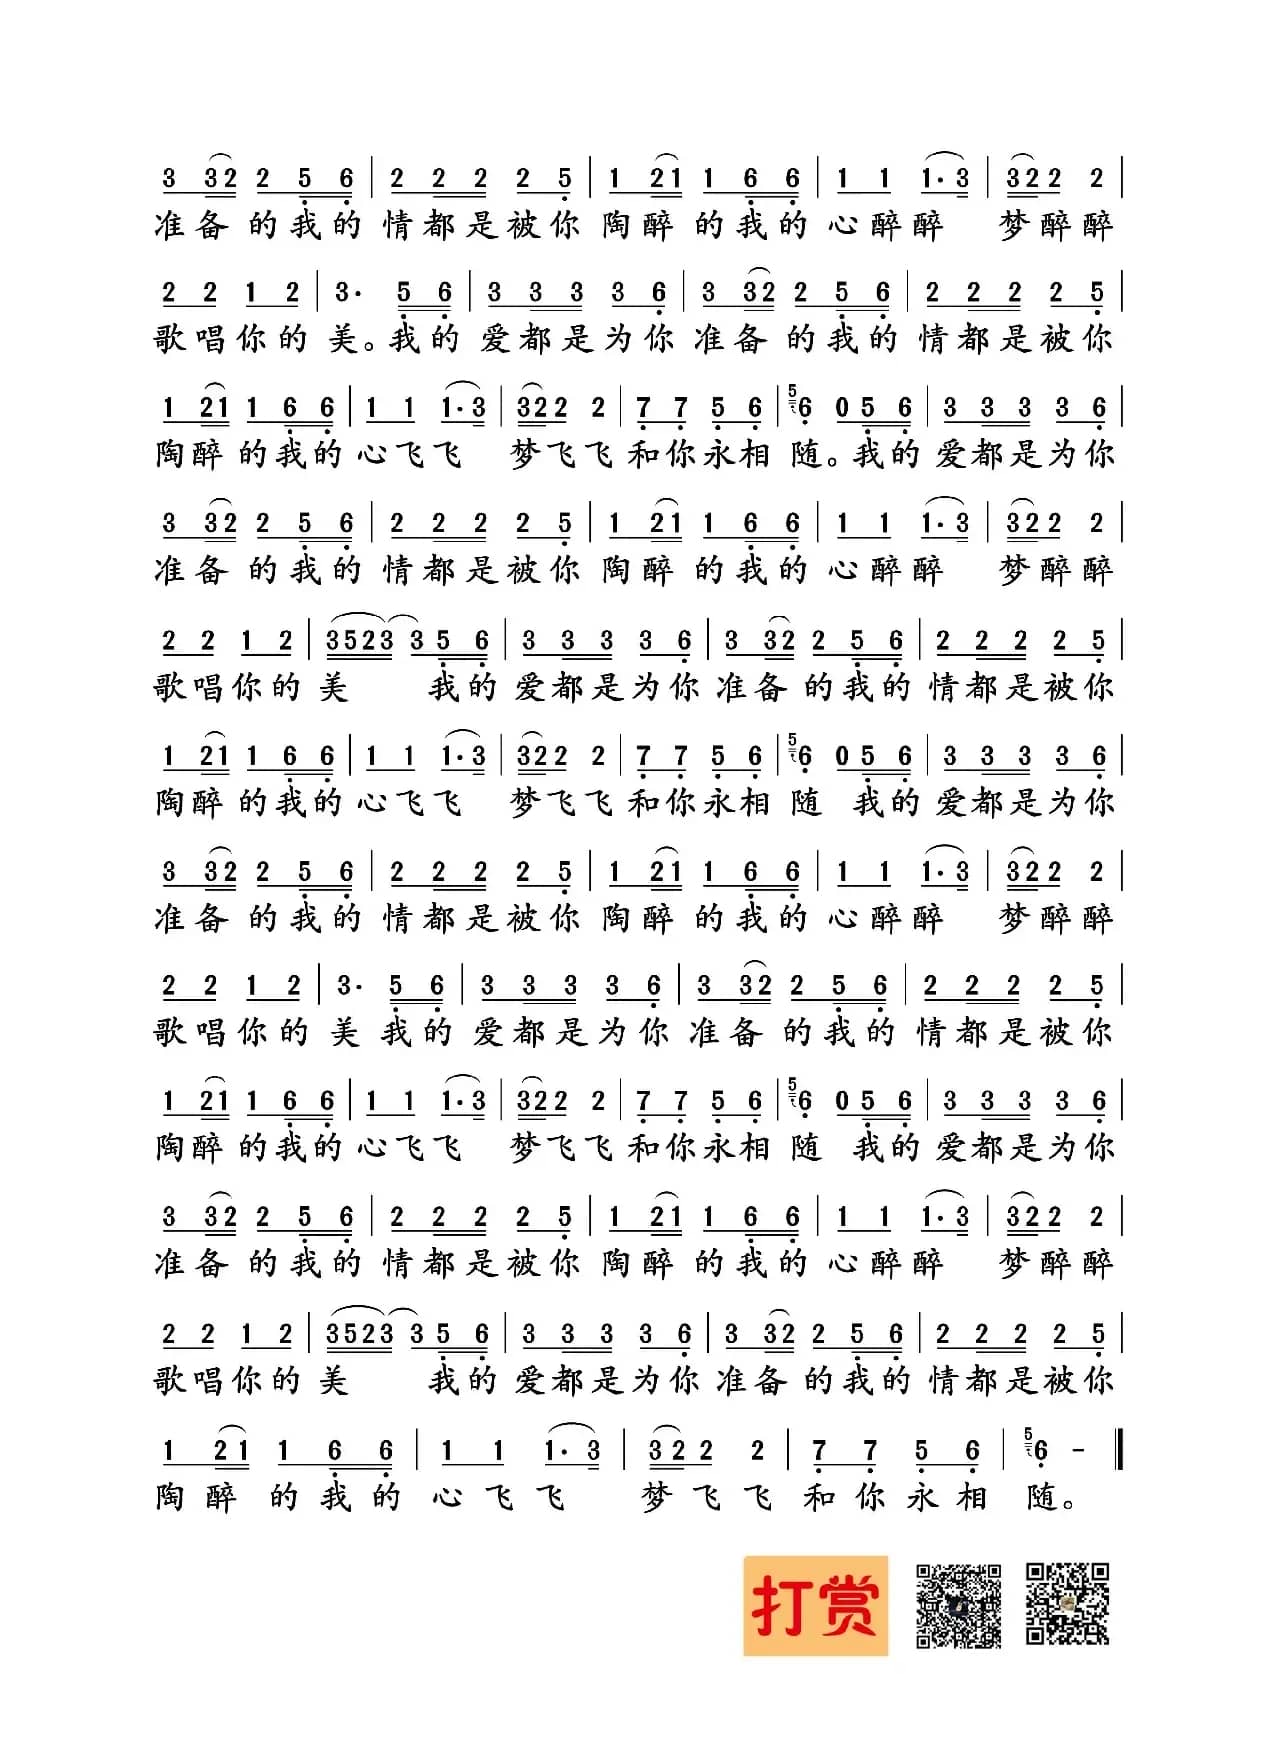 3 32 2 5 6 | 2 2 2 2 5 | 1 21 1 6 6 | 1 1 1·3 | 322 2 |
准备的我的情都是被你陶醉的我的心醉醉 梦醉醉
2 2 1 2 | 3· 5 6 | 3 3 3 3 6 | 3 32 2 5 6 | 2 2 2 2 5 |
歌唱你的美。我的爱都是为你准备的我的情都是被你
1 21 1 6 6 | 1 1 1·3 | 322 2 | 7 7 5 6 | 5 6 0 5 6 | 3 3 3 3 6 |
陶醉的我的心飞飞 梦飞飞和你永相随。我的爱都是为你
3 32 2 5 6 | 2 2 2 2 5 | 1 21 1 6 6 | 1 1 1·3 | 322 2 |
准备的我的情都是被你陶醉的我的心醉醉 梦醉醉
2 2 1 2 | 3523 3 5 6 | 3 3 3 3 6 | 3 32 2 5 6 | 2 2 2 2 5 |
歌唱你的美 我的爱都是为你准备的我的情都是被你
1 21 1 6 6 | 1 1 1·3 | 322 2 | 7 7 5 6 | 5 6 0 5 6 | 3 3 3 3 6 |
陶醉的我的心飞飞 梦飞飞和你永相随 我的爱都是为你
3 32 2 5 6 | 2 2 2 2 5 | 1 21 1 6 6 | 1 1 1·3 | 322 2 |
准备的我的情都是被你陶醉的我的心醉醉 梦醉醉
2 2 1 2 | 3· 5 6 | 3 3 3 3 6 | 3 32 2 5 6 | 2 2 2 2 5 |
歌唱你的美我的爱都是为你准备的我的情都是被你
1 21 1 6 6 | 1 1 1·3 | 322 2 | 7 7 5 6 | 5 6 0 5 6 | 3 3 3 3 6 |
陶醉的我的心飞飞 梦飞飞和你永相随 我的爱都是为你
3 32 2 5 6 | 2 2 2 2 5 | 1 21 1 6 6 | 1 1 1·3 | 322 2 |
准备的我的情都是被你陶醉的我的心醉醉 梦醉醉
2 2 1 2 | 3523 3 5 6 | 3 3 3 3 6 | 3 32 2 5 6 | 2 2 2 2 5 |
歌唱你的美 我的爱都是为你准备的我的情都是被你
1 21 1 6 6 | 1 1 1·3 | 322 2 | 7 7 5 6 | 5 6 - ‖
陶醉的我的心飞飞 梦飞飞和你永相随。
打赏